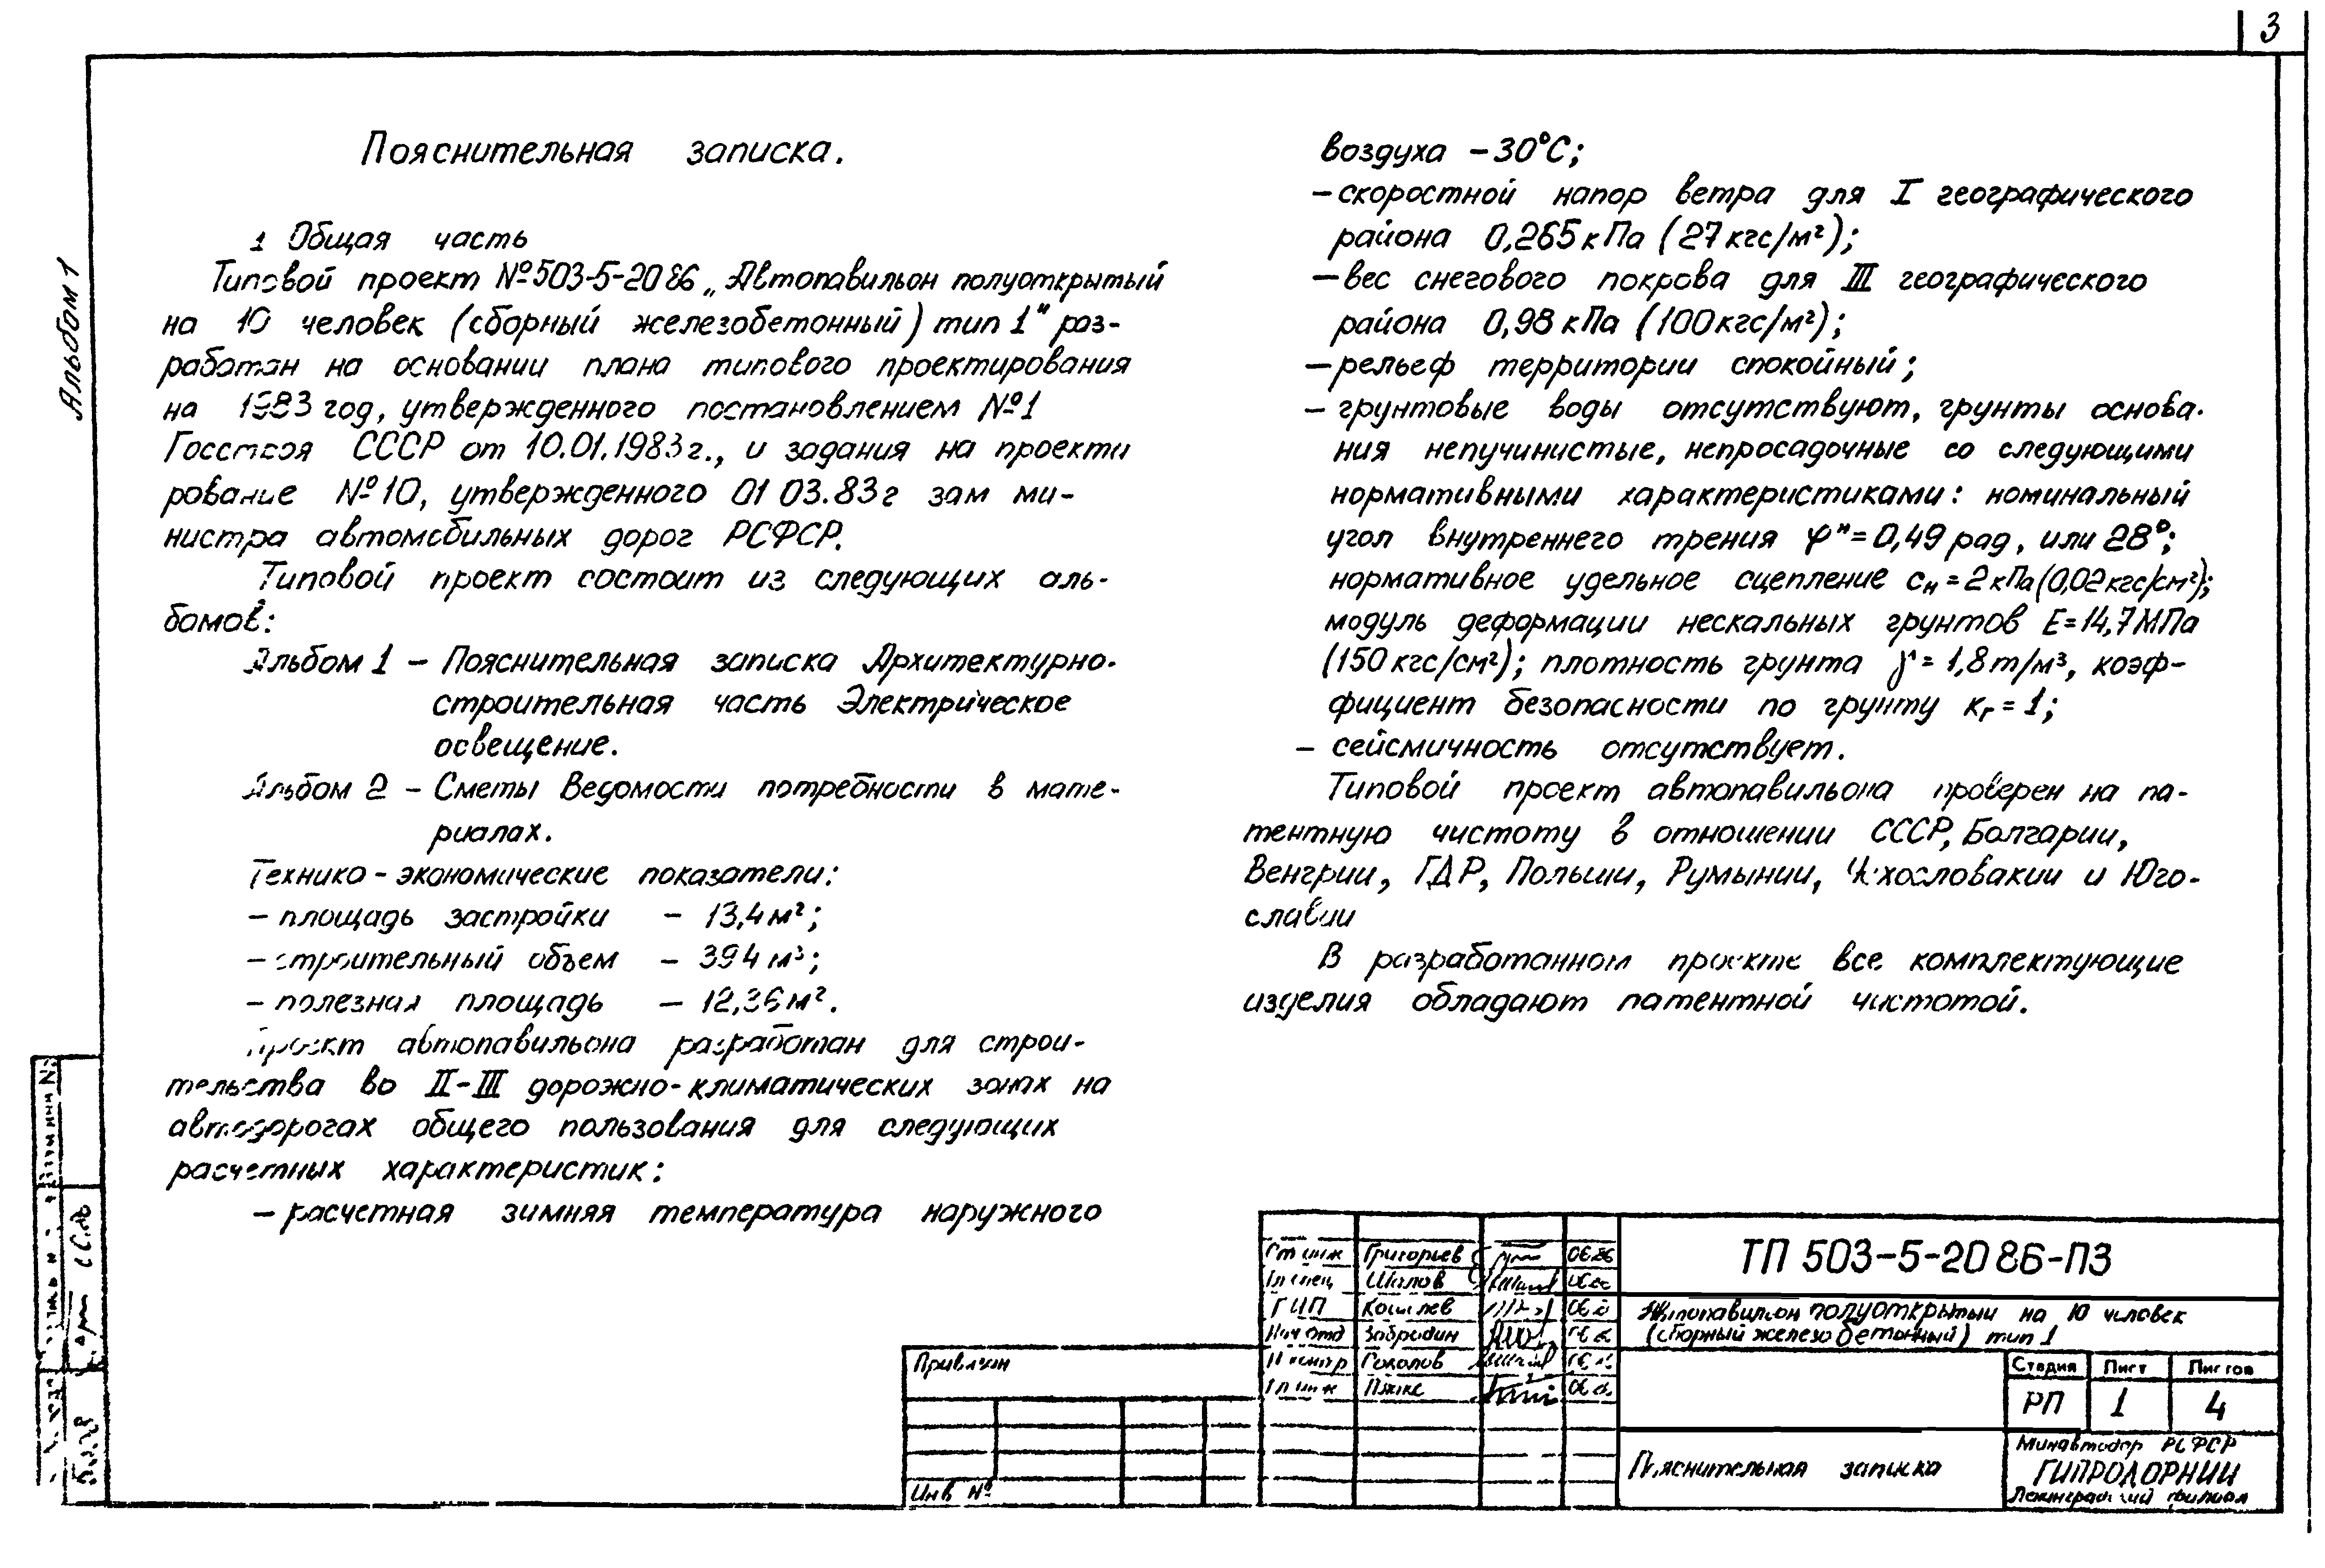 3
Альбом 1
Пояснительная записка.
1 Общая часть
Типовой проект №503-5-20 86 „Автопавильон полуоткрытый
на 10 человек (сборный железобетонный) тип 1" раз-
работан на основании плана типового проектирования
на 1983 год, утвержденного постановлением №1
Госстроя СССР от 10.01.1983г., и задания на проекти
рование №10, утвержденного 01 03.83г зам ми-
нистра автомобильных дорог РСФСР.
Типовой проект состоит из следующих аль-
бомов:
Альбом 1 – Пояснительная записка Архитектурно-
строительная часть Электрическое
освещение.
Альбом 2 – Сметы Ведомости потребности в мате-
риалах.
Технико-экономические показатели:
– площадь застройки – 13,4 м²;
– строительный объем – 39 4 м³;
– полезная площадь – 12,36 м².
Проект автопавильона разработан для строи-
тельства во II-III дорожно-климатических зонах на
автодорогах общего пользования для следующих
расчетных характеристик:
– расчетная зимняя температура наружного
воздуха –30°С;
– скоростной напор ветра для I географического
района 0,265 кПа (27 кгс/м²);
– вес снегового покрова для III географического
района 0,98 кПа (100 кгс/м²);
– рельеф территории спокойный;
– грунтовые воды отсутствуют, грунты основа-
ния непучинистые, непросадочные со следующими
нормативными характеристиками: номинальный
угол внутреннего трения φⁿ = 0,49 рад, или 28°;
нормативное удельное сцепление сн = 2 кПа (0,02 кгс/см²);
модуль деформации нескальных грунтов Е = 14,7 МПа
(150 кгс/см²); плотность грунта γ = 1,8 т/м³, коэф-
фициент безопасности по грунту кг = 1;
– сейсмичность отсутствует.
Типовой проект автопавильона проверен на па-
тентную чистоту в отношении СССР, Болгарии,
Венгрии, ГДР, Польши, Румынии, Чехословакии и Юго-
славии
В разработанном проекте все комплектующие
изделия обладают патентной чистотой.
Ст инж Григорьев 06.86
Гл спец Шилов
ГИП Кошелев
Нач отд Забродин
Н контр Соколов
Гл инж
Привязан
Инв №
ТП 503-5-20 86-ПЗ
Автопавильон полуоткрытый на 10 человек
(сборный железобетонный) тип 1
Стадия Лист Листов
РП 1 4
Пояснительная записка
Минавтодор РСФСР
ГИПРОДОРНИИ
Ленинградский филиал